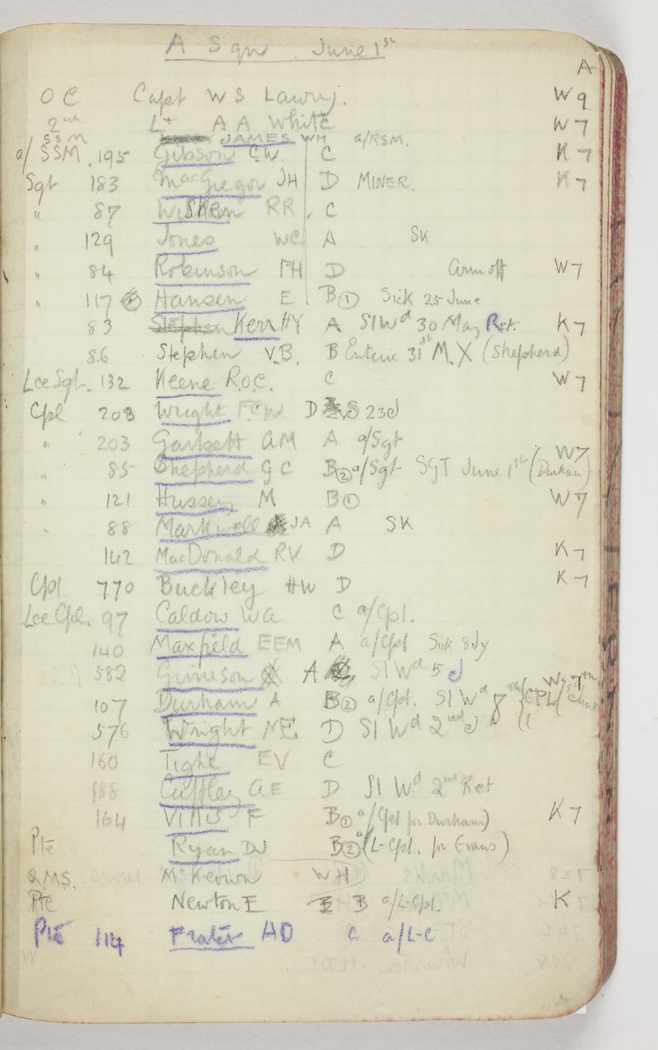 A Sqn June 1st
A
OC Capt W S Lawry. W 9
2nd Lt A A White W 7
SSM JAMES WH a/RSM.
a/ SSM. 195 Gibson C.W. C K 7
Sgt 183 MacGregor JH D MINER. K 7
" 87 RR. C
" 129 Jones WC A SK
" 84 Robinson FH D Arm off W 7
" 117 Hansen E B① Sick 25 June
83 Stephen Kerr HY A Sl Wd 30 May Ret. K 7
86 Stephen V.B. B Enteric 31st M. X (Shepherd)
Lce Sgt. 132 Keene R.O.C. C W 7
Cpl 208 Wright FCW D S 23d
" 203 Garkett AM A a/Sgt
" 85 Shepherd G C B② a/Sgt SGT June 1st (Durham) W 7
" 121 Hussey M B① W 7
" 88 Markwell JA A SK
142 MacDonald RV D K 7
Cpl 770 Buckley HW D K 7
Lce Cpl. 97 Caldow WA C a/Cpl.
140 Maxfield EEM A a/Cpl Sick 8 Jy
582 Grineson A Sl Wd 5
107 Durham A B② a/Cpl. Sl Wd 8 CPL
576 Wright ME D Sl Wd 2nd
160 Tighe EV C
Cuffley AE D Sl Wd 2nd Ret
164 Villis F B① a/Cpl for Durham) K 7
Pte Ryan DJ B② (L-Cpl. for Evans)
QMS. McKeown WH
Pte Newton E B a/L-Cpl. K
Pte 114 Frater HD C a/L-C